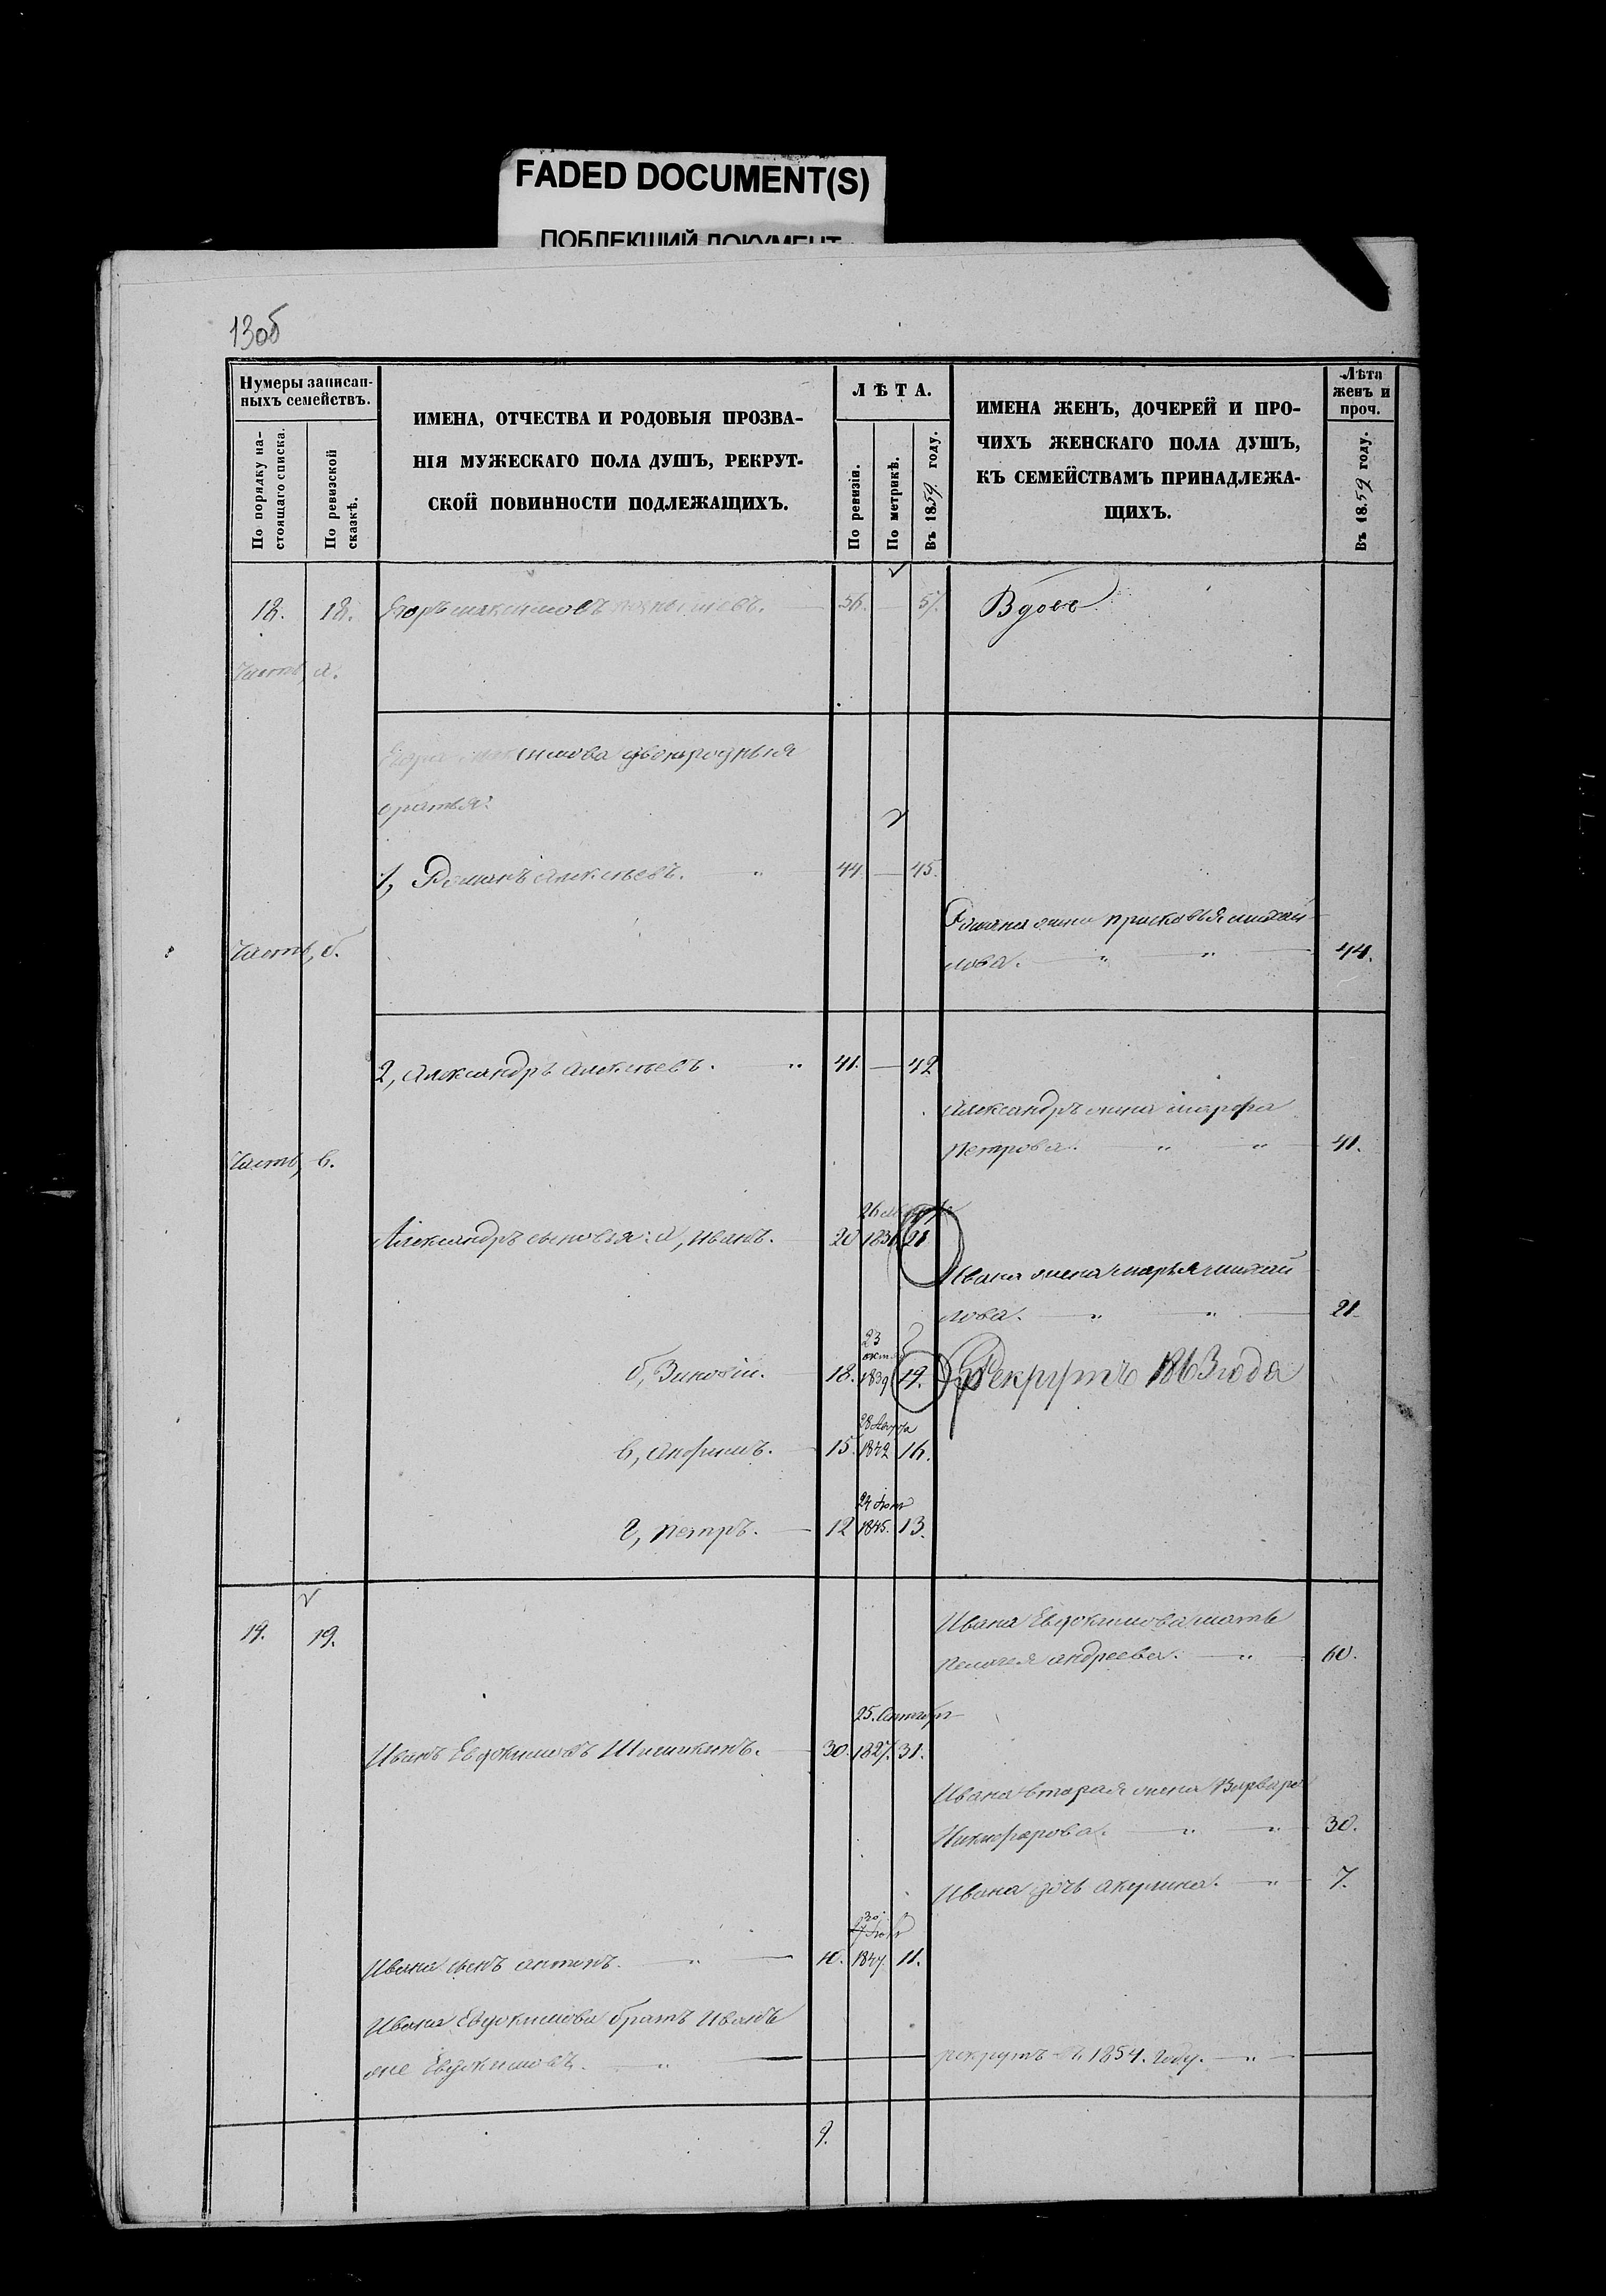 FADED DOCUMENT(S)
ПОБЛЕКШИЙ ДОКУМЕНТ
13об
Нумеры записан-
ныхъ семействъ.
По порядку на-
стоящаго списка.
По ревизской
сказкѣ.
ИМЕНА, ОТЧЕСТВА И РОДОВЫЯ ПРОЗВА-
НІЯ МУЖЕСКАГО ПОЛА ДУШЪ, РЕКРУТ-
СКОЙ ПОВИННОСТИ ПОДЛЕЖАЩИХЪ.
ЛѢТА.
По ревизіи.
По метрикѣ.
Въ 1859 году.
ИМЕНА ЖЕНЪ, ДОЧЕРЕЙ И ПРО-
ЧИХЪ ЖЕНСКАГО ПОЛА ДУШЪ,
КЪ СЕМЕЙСТВАМЪ ПРИНАДЛЕЖА-
ЩИХЪ.
Лѣта
женъ и
проч.
Въ 1859 году.
18. 18. Егоръ Максимовъ 56. — 57. Вдовъ
Часть, а.
Егора Максимова двоюродныя
братья:
1, Романъ Алексѣевъ. " 44. — 45.
Романа жена Прасковья Михай
Часть, б. лова. " " 44.
2, Александръ Алексѣевъ. " 41. — 42
Александръ жена Марфа
Петрова. " " 41.
Часть, в.
26
Александръ сыновья: а, Иванъ. 20 1838 21.
Ивана жена Марья Михай
лова. " " 21.
23
окт.
б, Зиновій. 18. 1839 19. Рекрутъ 1863 года
28 Марта
в, Ефимъ. 15. 1842 16.
24
г, Петръ. 12 1845. 13.
19. 19. Ивана Евдокимова мать
Пелагея Андреева. " 60.
25.
Иванъ Евдокимовъ Шишкинъ. 30. 1827. 31.
Ивана вторая жена Варвара
Никифорова. " " 30.
Ивана дочь Акулина. " 7.
30
Ивана сынъ Антонъ. " 10. 1847. 11.
Ивана Евдокимова братъ Иванъ
же Евдокимовъ. " рекрутъ въ 1854. году. "
9.